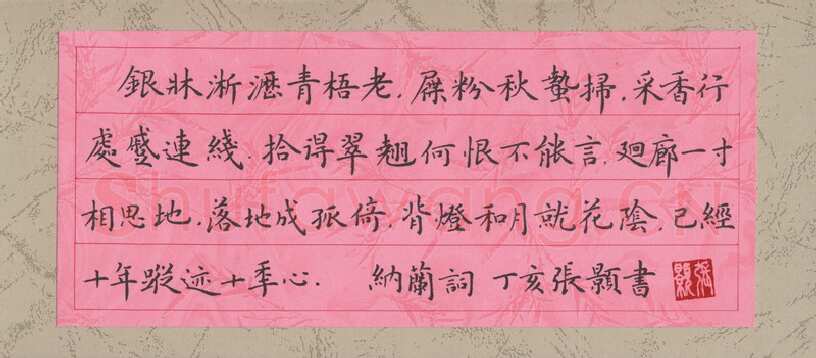 銀牀淅瀝青梧老.屧粉秋蛩掃.采香行
處蹙連綫.拾得翠翹何恨不能言.廻廊一寸
相思地.落地成孤倚.背燈和月就花陰.已經
十年蹤迹十年心.　納蘭詞 丁亥張顥書
Shufawang.CN